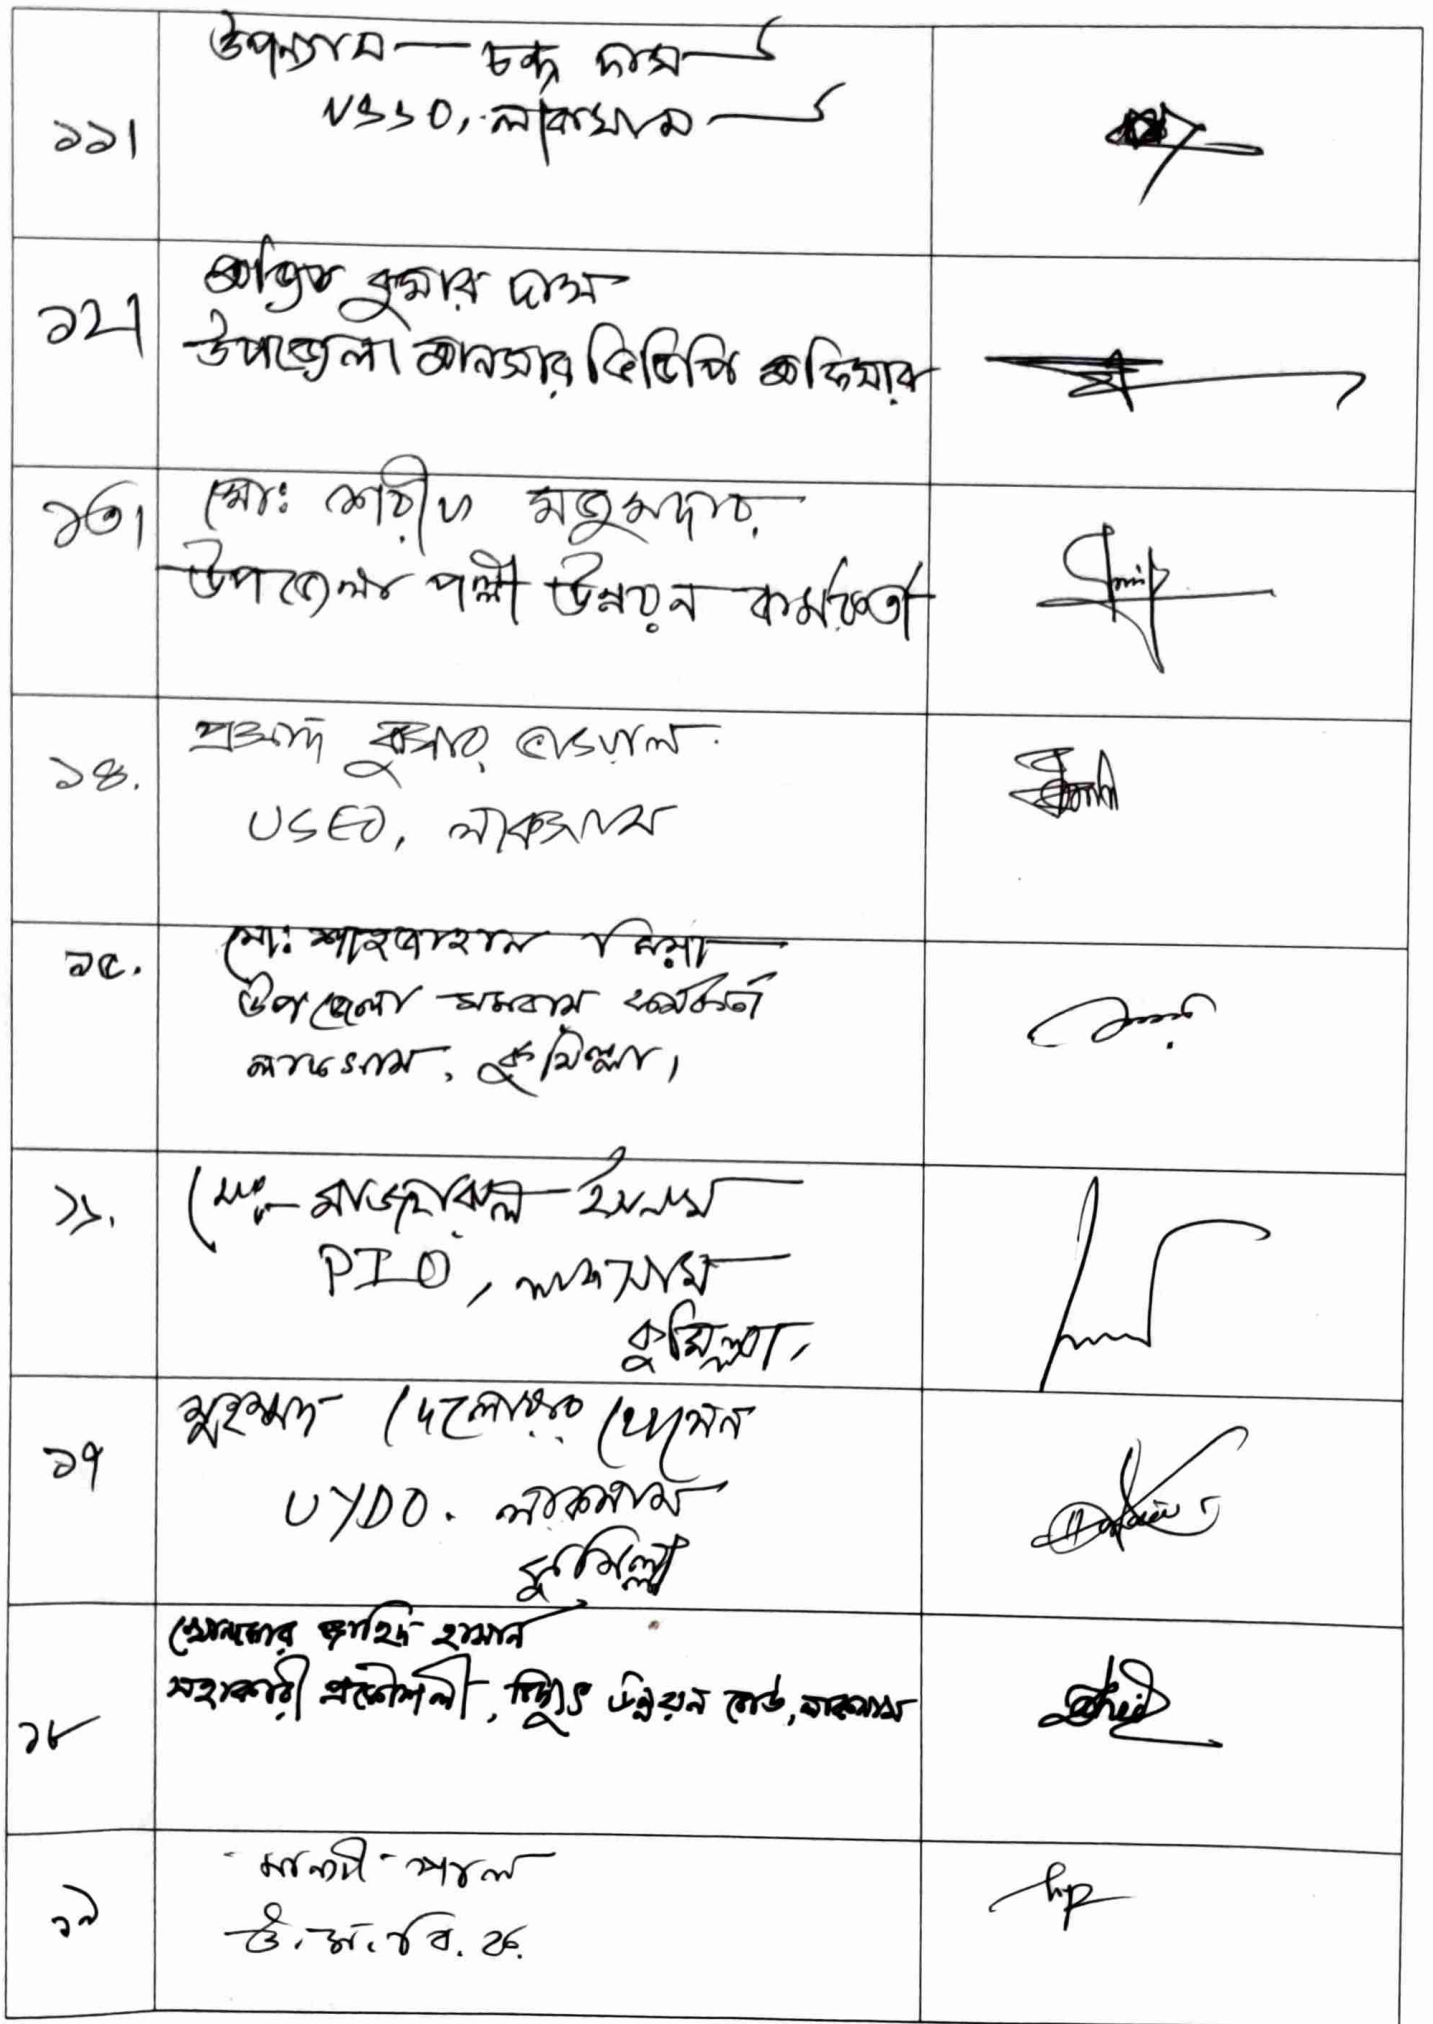 ১১।
উপন্যাস চন্দ্র দাস
USSO, লাকসাম
১২।
অজিত কুমার দাস
উপজেলা আনসার ভিডিপি অফিসার
১৩।
মোঃ শরীফ মজুমদার
উপজেলা পল্লী উন্নয়ন কর্মকর্তা
১৪.
কুমার
USEO, লাকসাম
১৫.
মোঃ শাহজাহান মিয়া
উপজেলা সমবায় কর্মকর্তা
লাকসাম, কুমিল্লা।
১৬.
মোঃ মাজহারুল ইসলাম
PIO, লাকসাম
কুমিল্লা,
১৭
মুহম্মদ দেলোয়ার হোসেন
UYDO. লাকসাম
কুমিল্লা
১৮
খোন্দকার জাহিদ হাসান
সহকারী প্রকৌশলী, বিদ্যুৎ উন্নয়ন বোর্ড, লাকসাম
১৯
পাল
উ. ম. বি. ক.